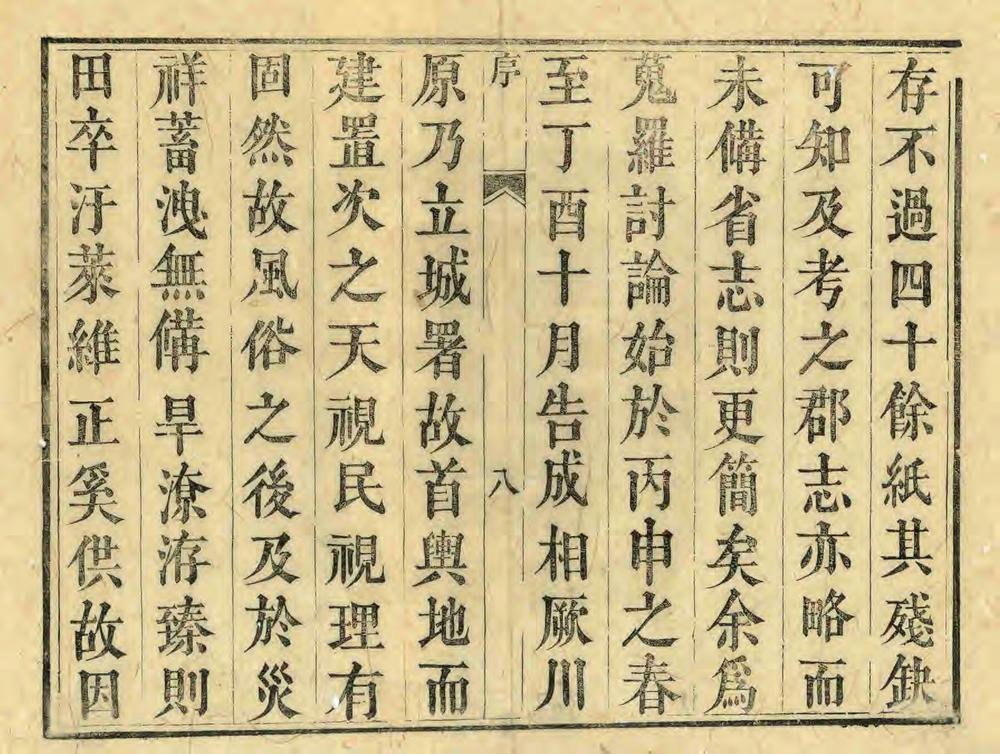 存不過四十餘紙其殘缺
可知及考之郡志亦略而
未備省志則更簡矣余爲
蒐羅討論始於丙申之春
至丁酉十月告成相厥川
序 八
原乃立城署故首輿地而
建置次之天視民視理有
固然故風俗之後及於災
祥蓄洩無備旱潦洊臻則
田卒汙萊維正奚供故因